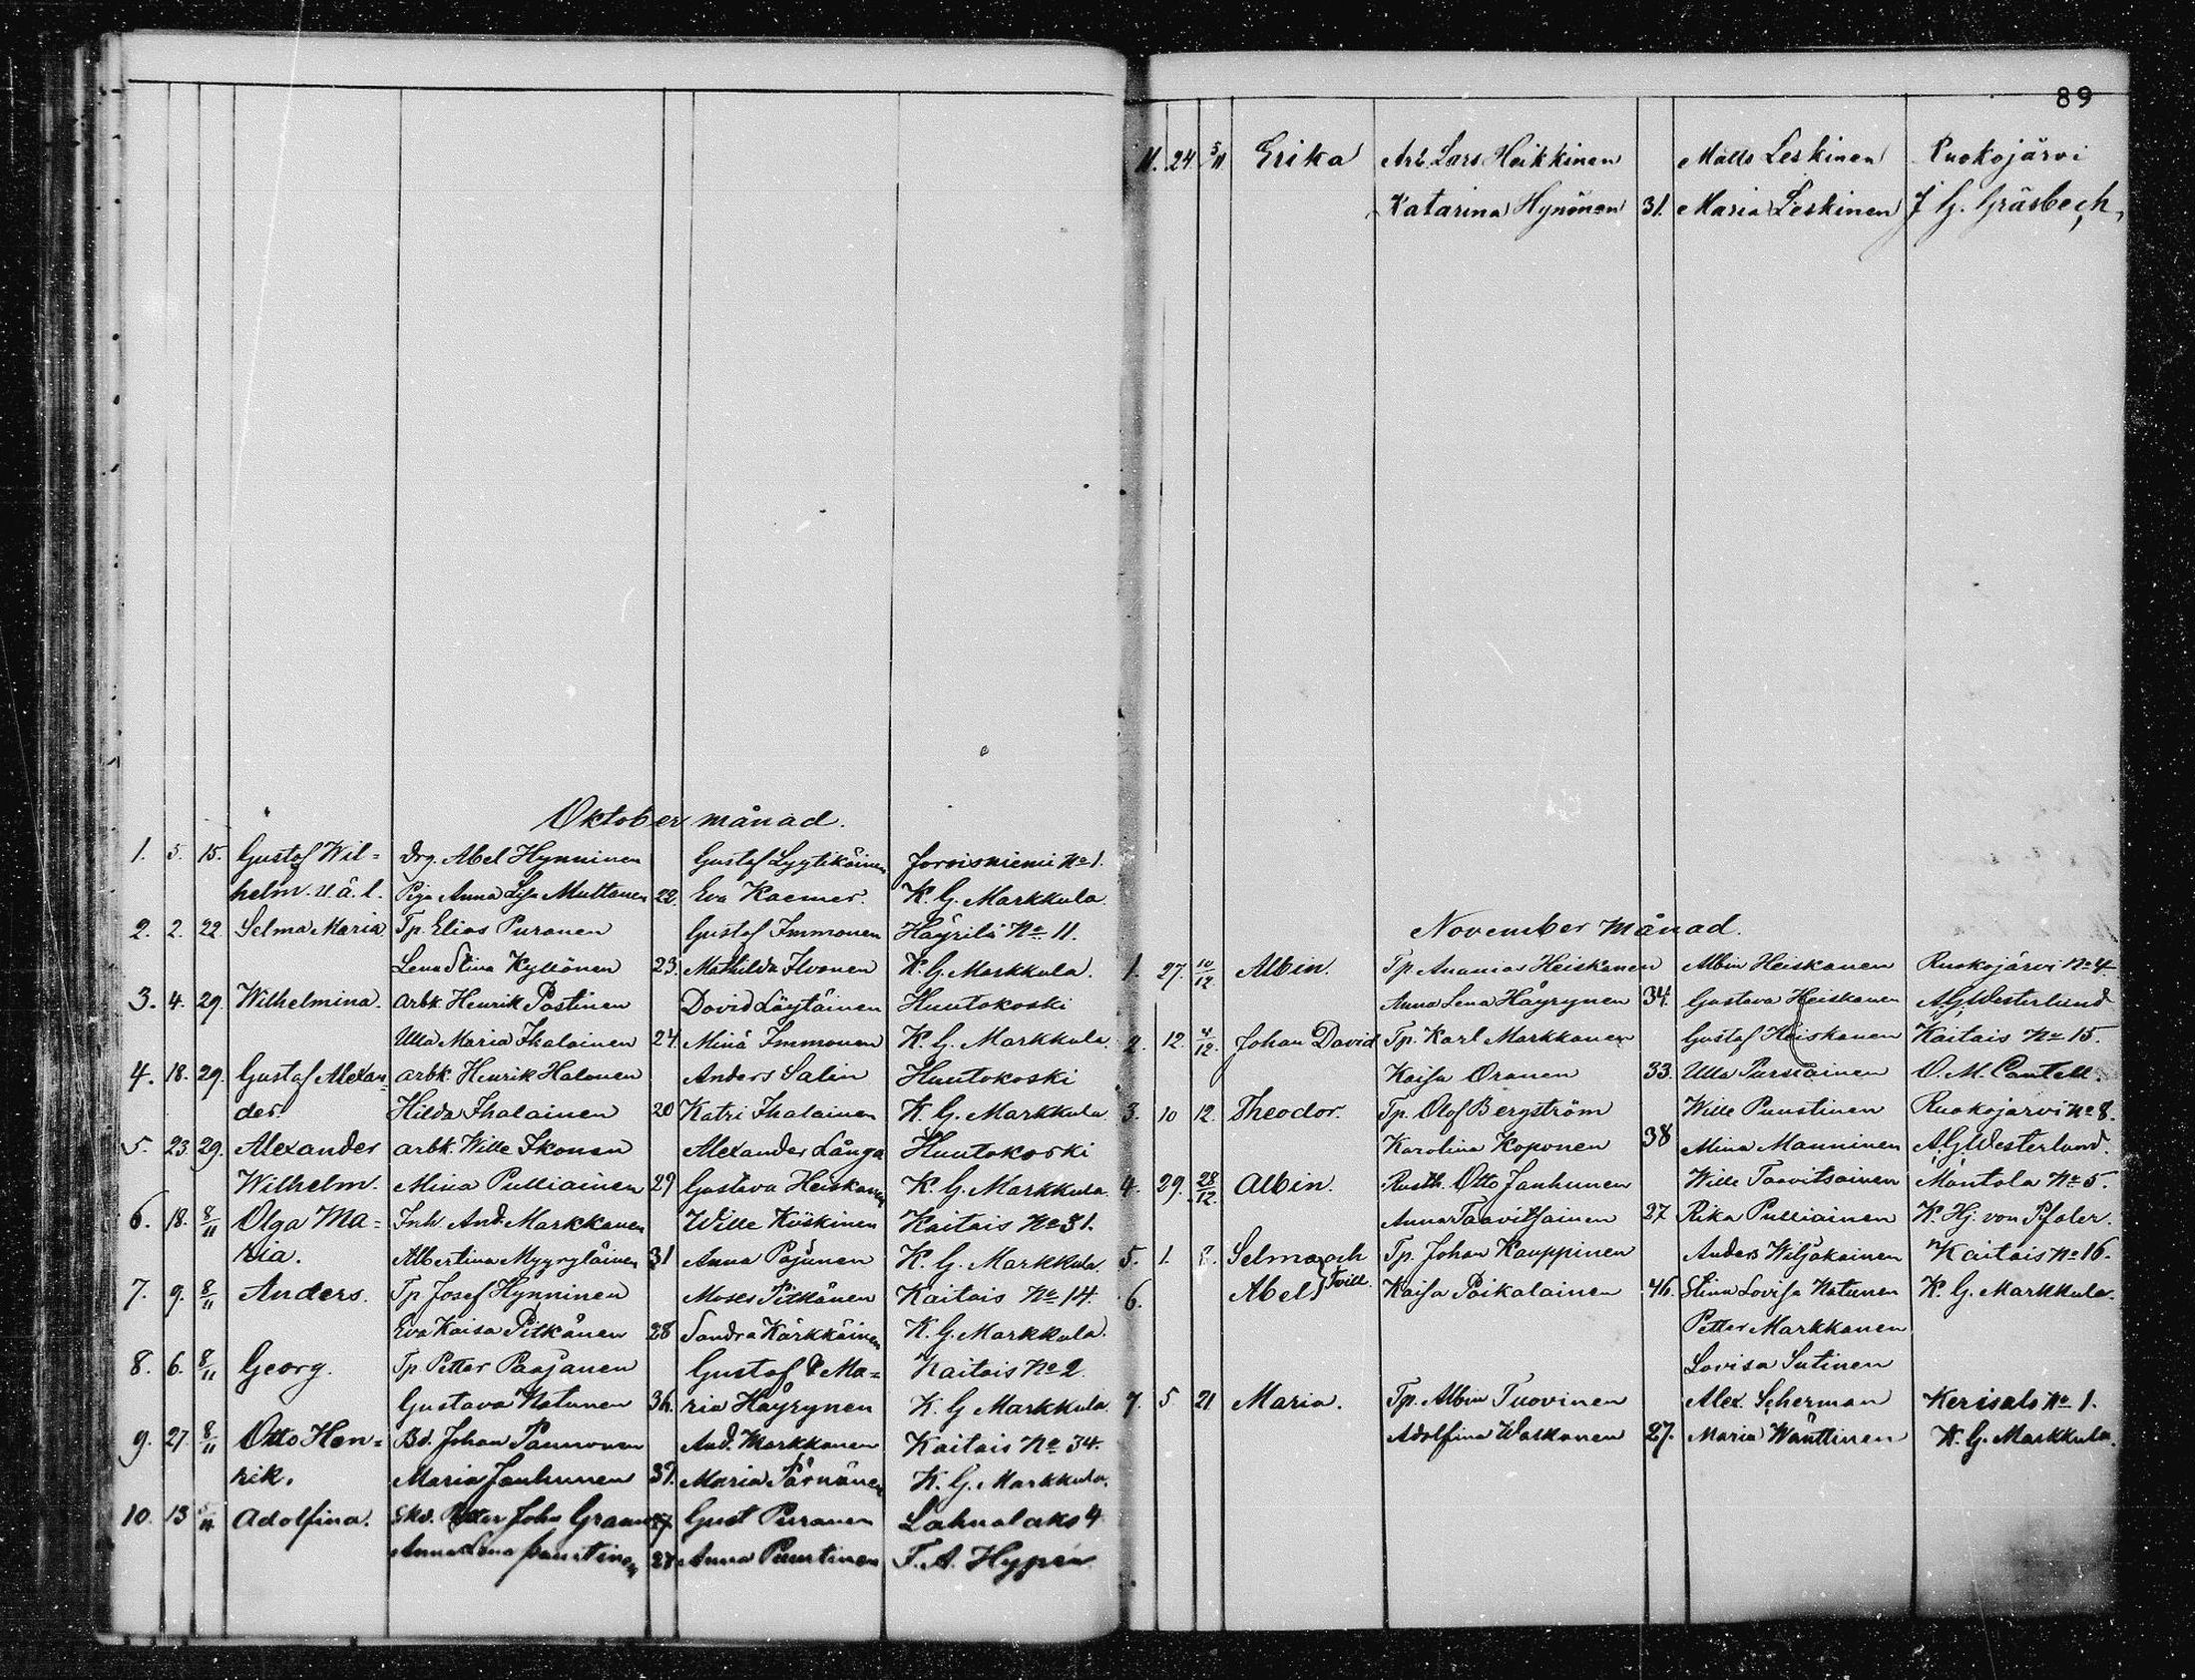 Oktober månad.
1. 5. 15. Gustaf Wil= Drg. Abel Hynninen Gustaf Lyytikäinen Jorvisniemi No 1.
helm. u.ä. l. Piga Anna Lisa Muttonen 22. Eva Kaemer. K. G. Markkula.
2. 2. 22. Selma Maria Tp. Elias Puranen Gustaf Immonen Häyrilä No 11.
Lena Stina Kyllönen 23. Mathilda Ilvonen K. G. Markkula.
3. 4. 29. Wilhelmina. Arbk. Henrik Postinen David Löytäinen Huutokoski
Ulla Maria Ihalainen 24. Mina Immonen K. G. Markkula.
4. 18. 29. Gustaf Alexan= arbk. Henrik Halonen Anders Salin Huutokoski
der. Hilda Ihalainen 20 Katri Ihalainen K. G. Markkula
5. 23. 29. Alexander arbk. Wille Ikonen Alexander Långa Huutokoski
Wilhelm. Mina Pulliainen 29 Gustava Heiskanen K. G. Markkula.
6. 18. 8/11 Olga Ma= Inh And. Markkanen Wille Kiiskinen Kaitais No 31.
ria. Albertina Myyryläinen 31 Anna Pajunen K. G. Markkula.
7. 9. 8/11 Anders. Tp. Josef Hynninen Moses Pitkänen Kaitais No 14.
Eva Kaisa Pitkänen 28 Sandra Kärkkäinen K. G. Markkula.
8. 6. 8/11 Georg. Tp Petter Paajanen Gustaf & Ma= Kaitais No 2.
Gustava Natunen 36. ria Häyrynen K. G Markkula.
9. 27. 8/11 Otto Hen= Bd. Johan Pannonen And. Markkanen Kaitais No 34.
rik. Maria Janhunen 37. Maria Pärnänen K. G. Markkula.
10. 13 Adolfina. John Gust Purranen Lahnalaks 4
Anna Lena Puustinen 28 Anna Puustinen F. A. Hypén
89
11. 24. 5/11 Erika Arb. Lars Heikkinen Matts Leskinen Ruokojärvi
Katarina Hynönen 31. Maria Leskinen J G. Gräsbech,
November månad.
1. 27. 10/12 Albin. Tp. Ananias Heiskanen Albin Heiskanen Ruokojärvi No 4
Anna Lena Häyrynen 34. Gustava Heiskanen A. G. Westerlund
2. 12. 4/12. Johan David Tp. Karl Markkanen Gustaf Heiskanen Kaitais No 15.
Kaisa Oranen 33. Ulla Pursiainen O. M. Cantell.
3. 10 12. Theodor. Tp. Olof Bergström Wille Puustinen Ruokojärvi No 8.
Karolina Koponen 38 Mina Manninen A. G. Westerlund.
4. 29. 28/12. Albin. Rusth. Otto Janhunen Wille Taavitsainen Mäntola No 5.
Anna Taavitsainen 27 Rika Pulliainen K. Hj. von Pfaler.
5. 1. 8. Selma och Tp. Johan Kauppinen Anders Wiljakainen Kaitais No 16.
6. Abel Tvill. Kaisa Poikalainen 46. Stina Lovisa Natunen K. G. Markkula.
Petter Markkanen
Lovisa Sutinen
7. 5. 21 Maria. Tp. Albin Tuovinen Alex Scherman Kerisalo No 1.
Adolfina Waskonen 27. Maria Wänttinen K. G. Markkula.